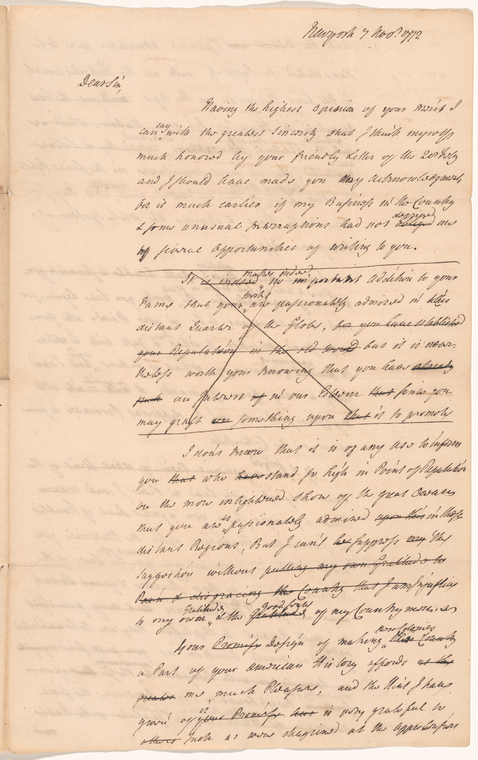 Newyork 7 Novr. 1772
Dear Sir,
Having the highest Opinion of your Merit I
can say with the greatest Sincerity that I think myself
much honored by your friendly Letter of the 20 July
and I should have made you my Acknowledgments
for it much earlier if my Business in the Country
& some unusual Interruptions had not deprived me
of several opportunities of writing to you.
It is indeed makes indeed no important Addition to your
Fame that your works are passionately admired in this
distant Quarter of the Globe, for you have established
your Reputation in the old World but it is never-
theless worth your knowing that you have already
such an Interest in our Esteem that since you
may graft something upon that it to promote
I don't know that it is of any Use to inform
you that who have stand so high in Point of Reputation
on the more inlightened Shore of the great Ocean
that you are passionately admired upon this in these
distant Regions, But I can't suppress the
Suggestion without putting my own Gratitude to
Pain & disgracing the Country that I am
to my own Gratitude, & the good Sense of my Countrymen.
Your Promise Design of making this Country
a Part of your American History affords
me, much Pleasure, and the Hint I have
given of your Promise is very grateful to
others such as were chagrined at the Apprehensions